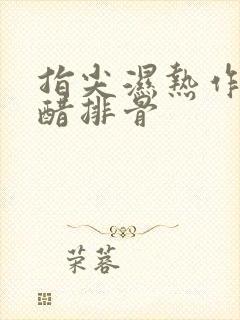 指尖濕熱作
醋排骨
荣蓉